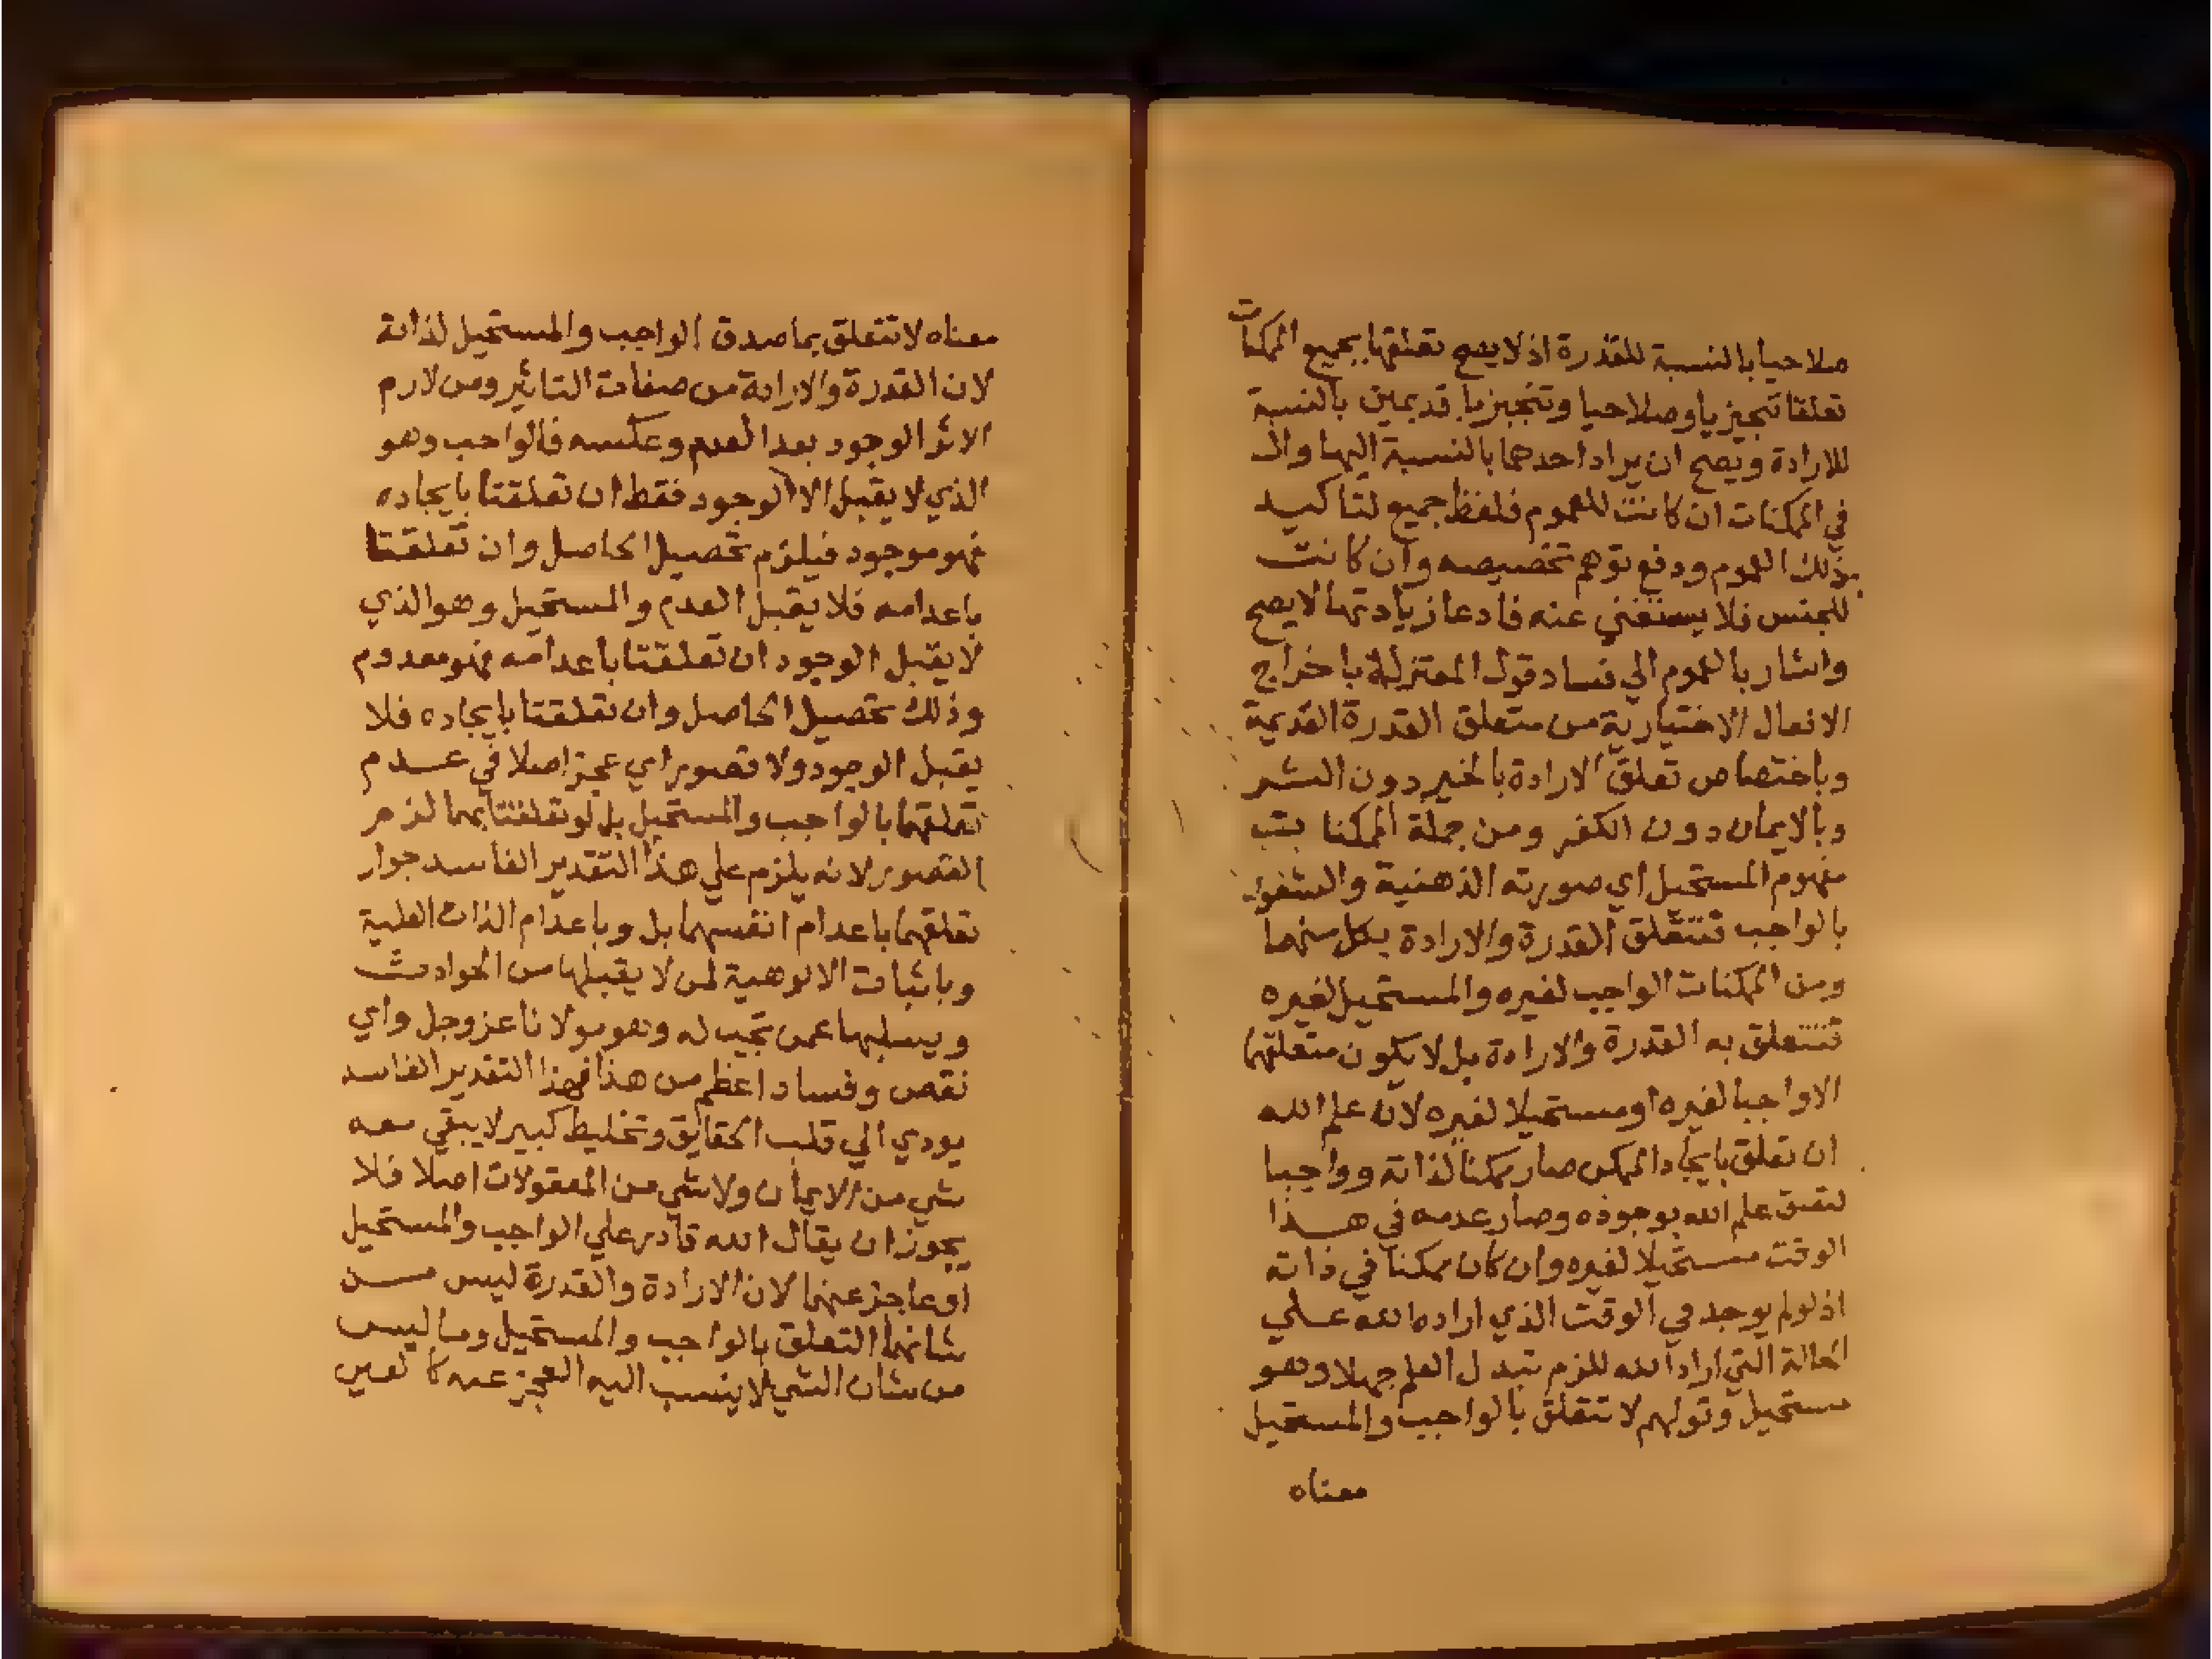 صلاحيا بالنسبة للقدرة اذ لا يصح تعلقها بجميع الممكنات
تعلقا تنجيزيا وصلاحيا وتنجيزيا قديمين بالنسبة
للارادة ويصح ان يراد احدهما بالنسبة اليها وال
في الممكنات ان كانت للعموم فلفظ جميع لتاكيد
ذلك العموم ودفع توهم تخصيصه وان كانت
للجنس فلا يستغني عنه فادعا زيادتها لا يصح
واشار بالعموم الي فساد قول المعتزلة باخراج
الافعال الاختيارية من متعلق القدرة القديمة
وباختصاص تعلق الارادة بالخير دون الشر
وبالايمان دون الكفر ومن جملة الممكنا
مفهوم المستحيل اي صورته الذهنية
بالواجب فتتعلق القدرة والارادة بكل منهما
ومن الممكنات الواجب لغيره والمستحيل لغيره
فتتعلق به القدرة والارادة بل لا يكون متعلقهما
الا واجبا لغيره او مستحيلا لغيره لان علم الله
ان تعلق بايجاد الممكن صار ممكنا لذاته وواجبا
علم الله بوجوده وصار عدمه في هذا
الوقت مستحيلا لغيره وان كان ممكنا في ذاته
اذ لو لم يوجد في الوقت الذي اراده الله علي
الحالة التي اراد الله للزم تبدل العلم جهلا وهو
مستحيل وقولهم لا تتعلق بالواجب والمستحيل
معناه
معناه لا تتعلق بماصدق الواجب والمستحيل لذاته
لان القدرة والارادة من صفات التاثير ومن لازم
الاثر الوجود بعد العدم وعكسه فالواجب وهو
الذي لا يقبل الا الوجود فقط ان تعلقتا بايجاده
فهو موجود فيلزم تحصيل الحاصل وان تعلقتا
باعدامه فلا يقبل العدم والمستحيل وهو الذي
لا يقبل الوجود ان تعلقتا باعدامه فهو معدوم
وذلك تحصيل الحاصل وان تعلقتا بايجاده فلا
يقبل الوجود ولا قصور اي عجز اصلا في عدم
تعلقهما بالواجب والمستحيل بل لو تعلقتا بهما لزم
القصور لانه يلزم علي هذا التقدير الفاسد جواز
تعلقهما باعدام انفسهما بل وباعدام الذات العلية
وباثبات الالوهية لمن لا يقبلها من الحوادث
ويسلبها عمن تجب له وهو مولانا عز وجل واي
نقص وفساد اعظم من هذا فهذا التقدير الفاسد
يودي الي قلب الحقايق وتخليط كبير لا يبقي معه
شي من الايمان ولا شي من المعقولات اصلا فلا
يجوز ان يقال الله قادر علي الواجب والمستحيل
او عاجز عنهما لان الارادة والقدرة ليس من
شانهما التعلق بالواجب والمستحيل وما ليس
من شان الشي لا ينسب اليه العجز عنه كالعين